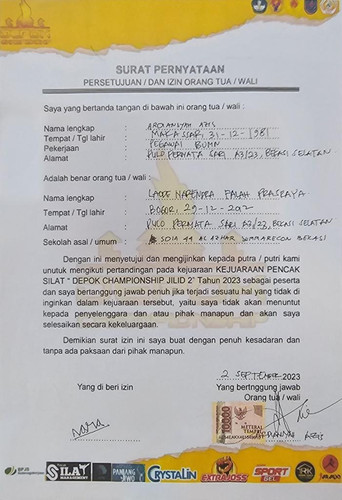 SURAT PERNYATAAN
PERSETUJUAN / DAN IZIN ORANG TUA / WALI
Saya yang bertanda tangan di bawah ini orang tua / wali :
Nama lengkap : AZIS
Tempat / Tgl lahir : MAKASSAR, 31-12-1981
Pekerjaan : PEGAWAI BUMN
Alamat : PULO PERMATA SARI A3/23, BEKASI SELATAN
Adalah benar orang tua / wali :
Nama lengkap : LAODE NARENDRA FALAH
Tempat / Tgl lahir : BOGOR, 29-12-
Alamat : PULO PERMATA SARI /23, BEKASI SELATAN
Sekolah asal / umum : 44 AL AZHAR SUMMARECON BEKASI
Dengan ini menyetujui dan mengijinkan kepada putra / putri kami
unutuk mengikuti pertandingan pada kejuaraan KEJUARAAN PENCAK
SILAT " DEPOK CHAMPIONSHIP JILID 2' Tahun 2023 sebagai peserta
dan saya bertanggung jawab penuh jika terjadi sesuatu hal yang tidak di
inginkan dalam kejuaraan tersebut, yaitu saya tidak akan menuntut
kepada penyelenggara dan atau pihak manapun dan akan saya
selesaikan secara kekeluargaan.
Demikian surat izin ini saya buat dengan penuh kesadaran dan
tanpa ada paksaan dari pihak manapun.
2 SEPTEMBER 2023
Yang di beri izin
Yang bertnggung jawab
Orang tua / wali
10000
METERAI
TEMPEL
SILAT
MANAGEMENT
CRYSTALIN
EXTRAJOSS
SPORT